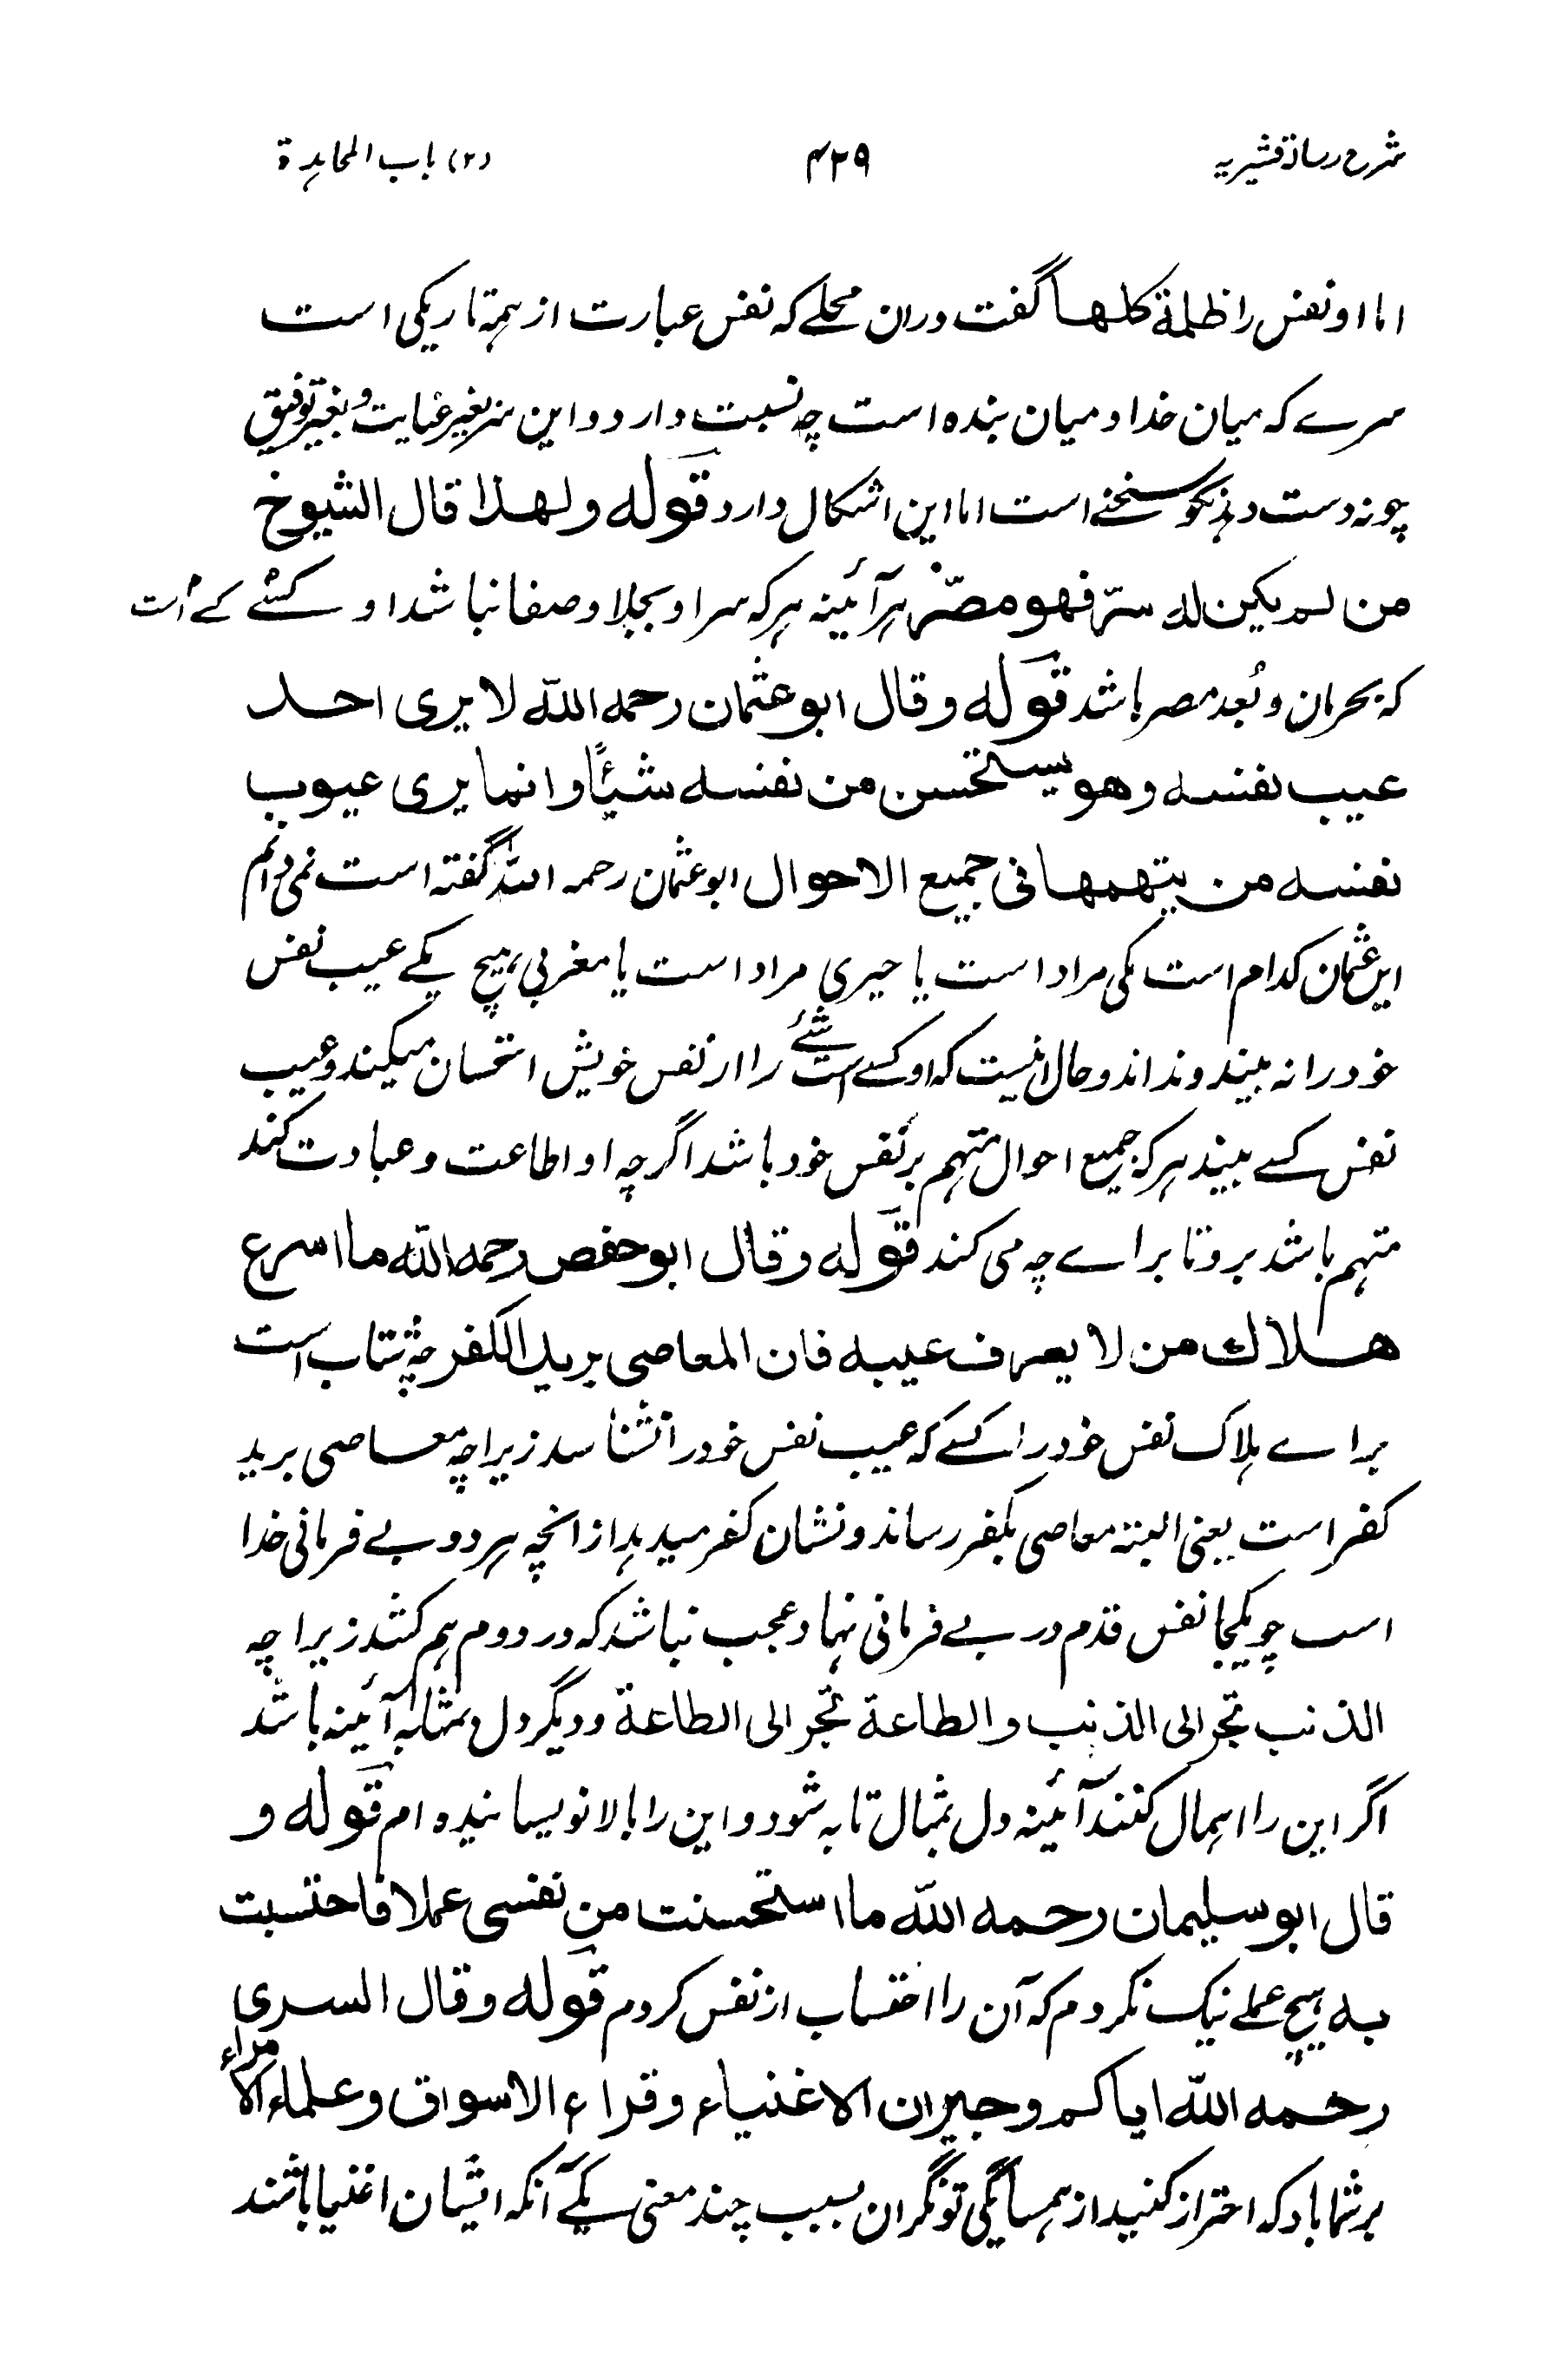 شرح رسالۀ قشیریہ ۴۲۹ (۲) باب المجاہدۃ
اما او نفس را ظلمۃ کلها گفت دران محلے کہ نفس عبارت از ہمہ تاریکی است
سرے کہ میان خدا و میان بندہ است چہ نسبت دارد و این سر بغیر عنایت و بغیر توفیق
چونہ دست دہد نیکو سخنے است اما این اشکال دارد قوله ولهذا قال الشیوخ
من لم یکن له سرّ فهو مصرّ ہر آئینہ ہر کہ سر او بجلا و صفا نباشد او کسے است
کہ بحرمان و بُعد مصر باشد قوله وقال ابو عثمان رحمه الله لا یری احد
عیب نفسه وهو یستحسن من نفسه شیئًا وانما یری عیوب
نفسه من یتهمها فی جمیع الاحوال ابو عثمان رحمہ اللہ گفتہ است نمی دانم
این عثمان کدام است مکی مراد است یا حیری مراد است یا مغربی ہیچ یکے عیب نفس
خود را نہ بیند و نداند و حال اینست کہ او کسے است شئے را از نفس خویش استحسان میکند و عیب
نفس کسے بیند ہر کہ جمیع احوال متہم بر نفس خود باشد اگرچہ او اطاعت و عبادت کند
متہم باشد بر و تا براے چہ می کند قوله وقال ابو حفص رحمه الله ما اسرع
هلاك من لا یعرف عیبه فان المعاصی برید الکفر چہ شتاب است
براے ہلاک نفس خود را کسے کہ عیب نفس خود را نشناسد زیراچہ معاصی برید
کفر است یعنی البتہ معاصی بکفر رساند و نشان کفر میدہد از انچہ ہر دو بے فرمانی خدا
است چو یکجا نفس قدم در بے فرمانی نہاد عجب نباشد کہ در دوم ہم کشد زیراچہ
الذنب تجر الی الذنب والطاعة تجر الی الطاعة و دیگر دل بمثابہ آئینہ باشد
اگر این را اہمال کنند آئینہ دل بمثال تابہ شود و این را بالا نویسانیدہ ام قوله و
قال ابو سلیمان رحمه الله ما استحسنت من نفسی عملا فاحتسبت
به ہیچ عملے نیک نکردم کہ آن را احتساب از نفس کردم قوله وقال السری
رحمه الله ایاکم وجیران الاغنیاء وقراء الاسواق وعلماء الامراء
بر شما باد کہ احتراز کنید از ہمسایگی تونگران بسبب چند معنی یکے آنکہ ایشان اغنیا باشند